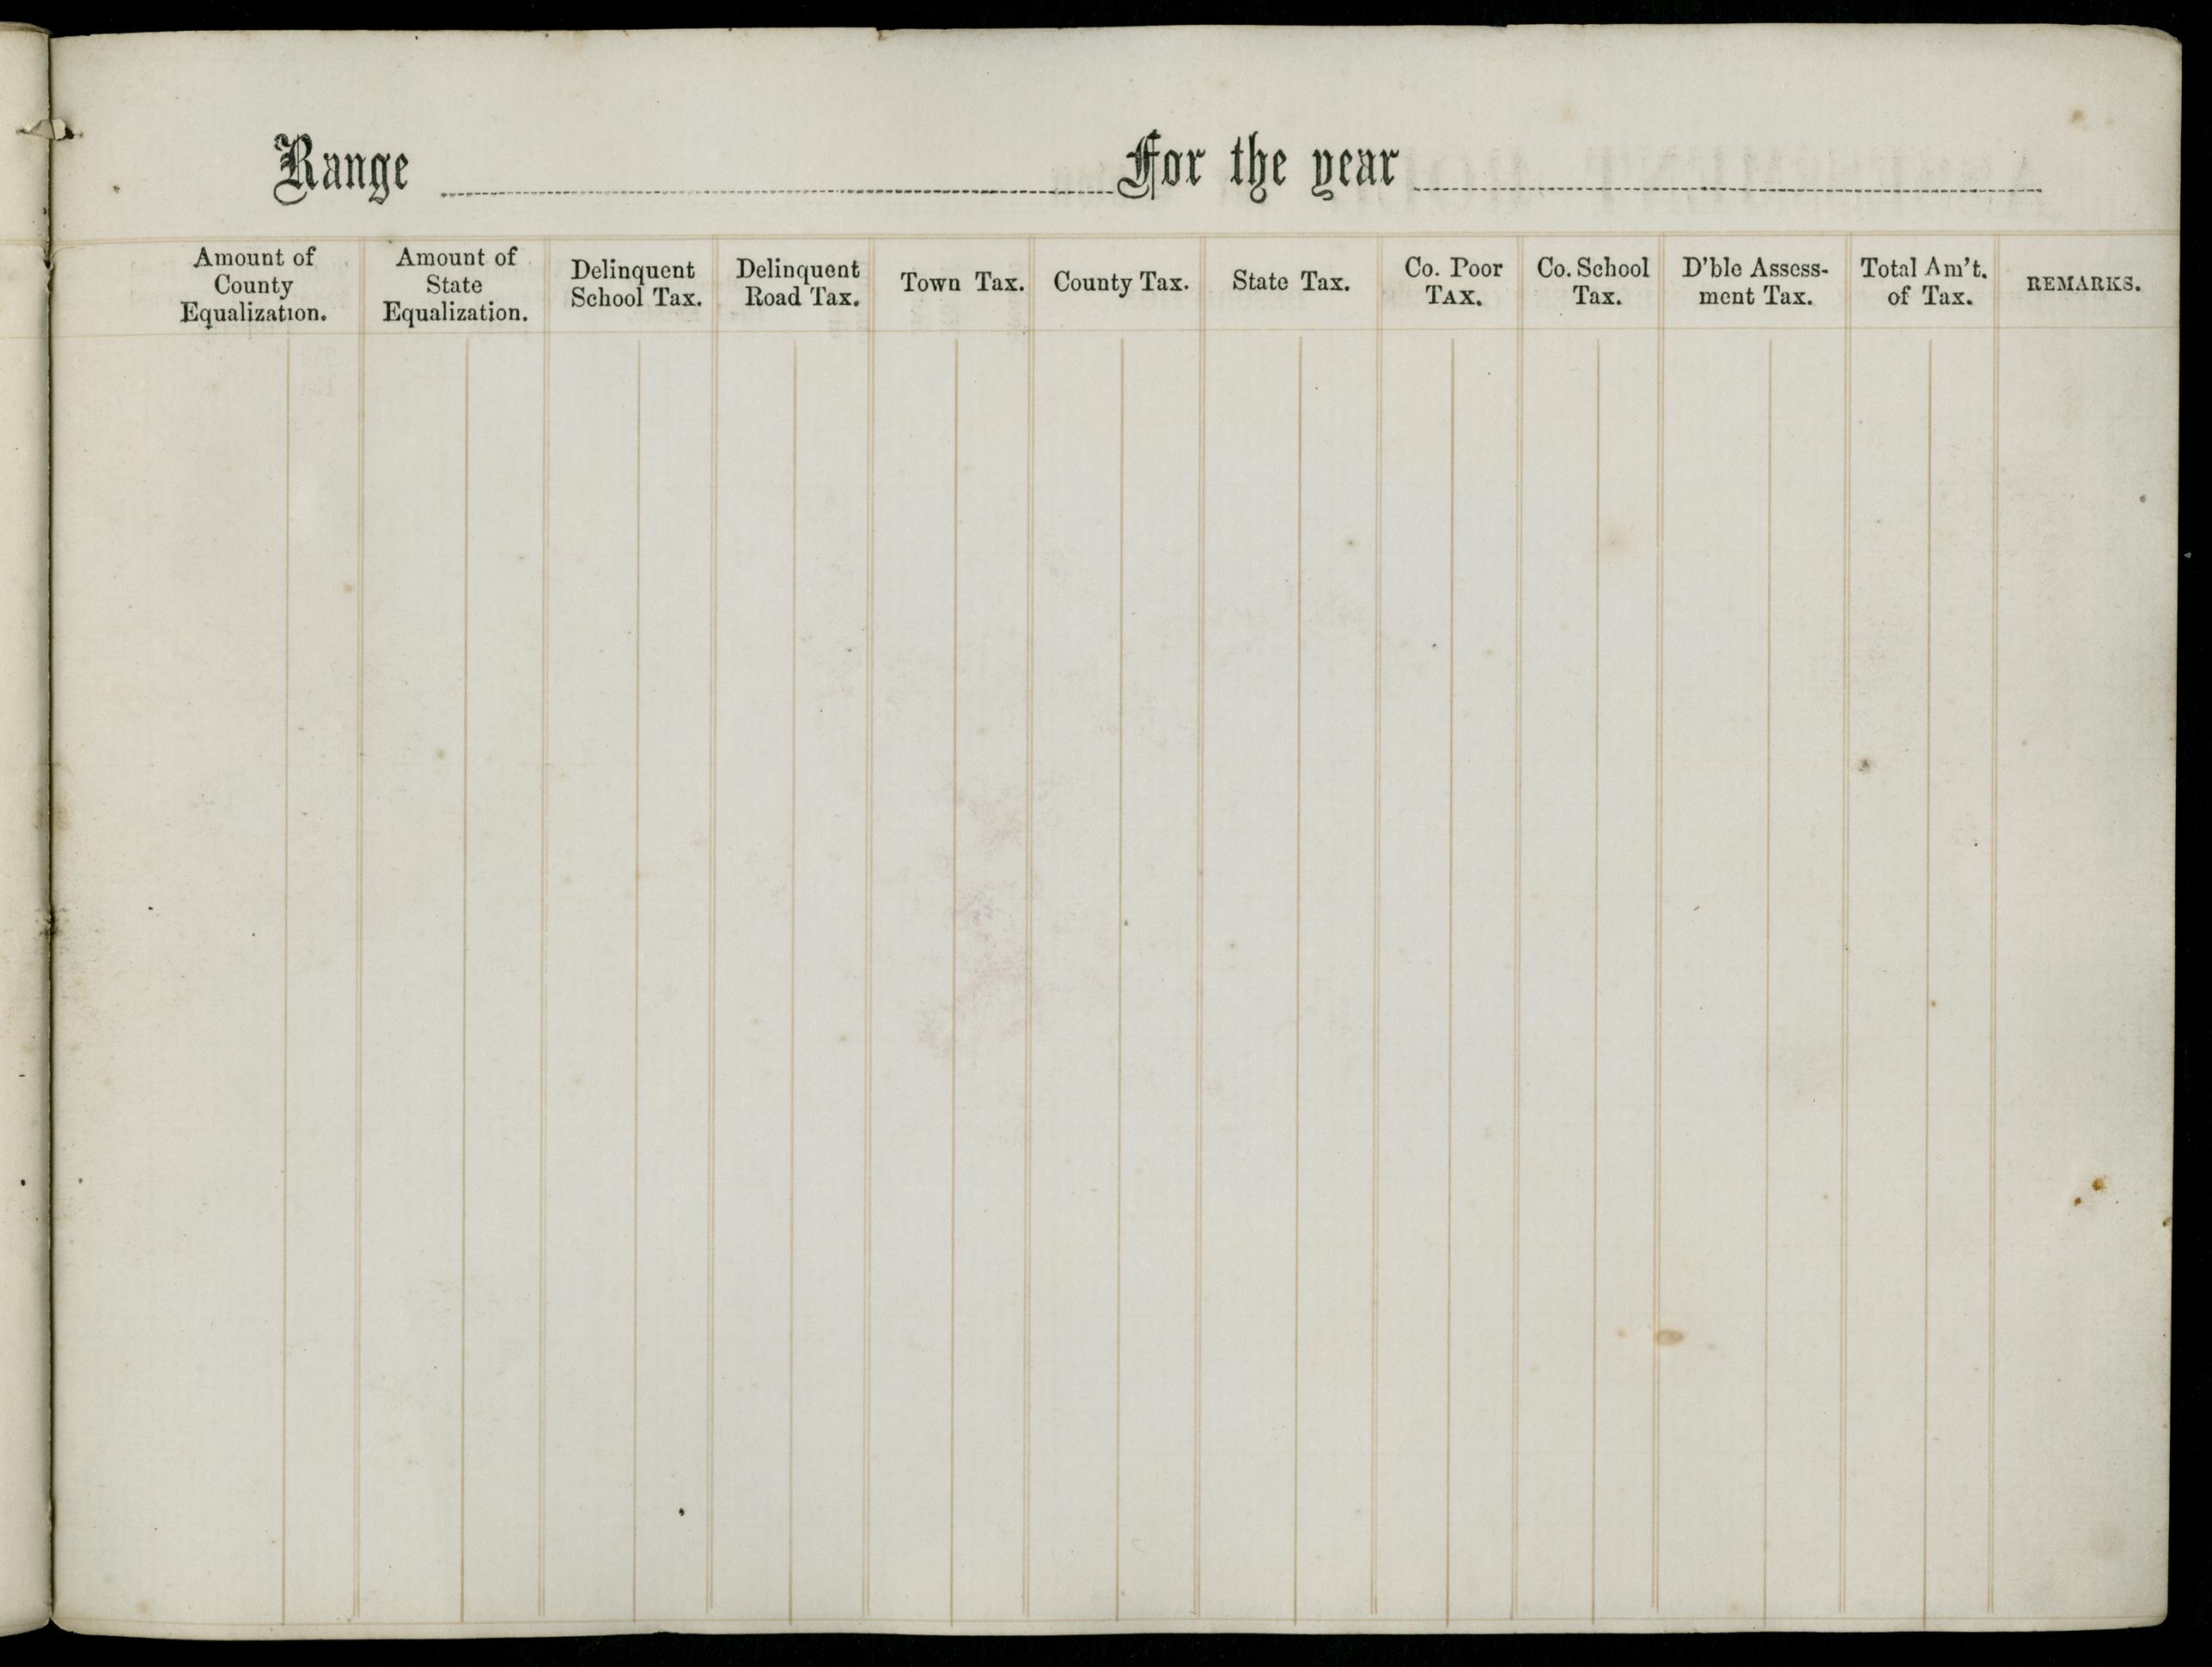 Range For the year
Amount of County Equalization.
Amount of State Equalization.
Delinquent School Tax.
Delinquent Road Tax.
Town Tax.
County Tax.
State Tax.
Co. Poor TAX.
Co. School Tax.
D'ble Assess-
ment Tax.
Total Am't. of Tax.
REMARKS.